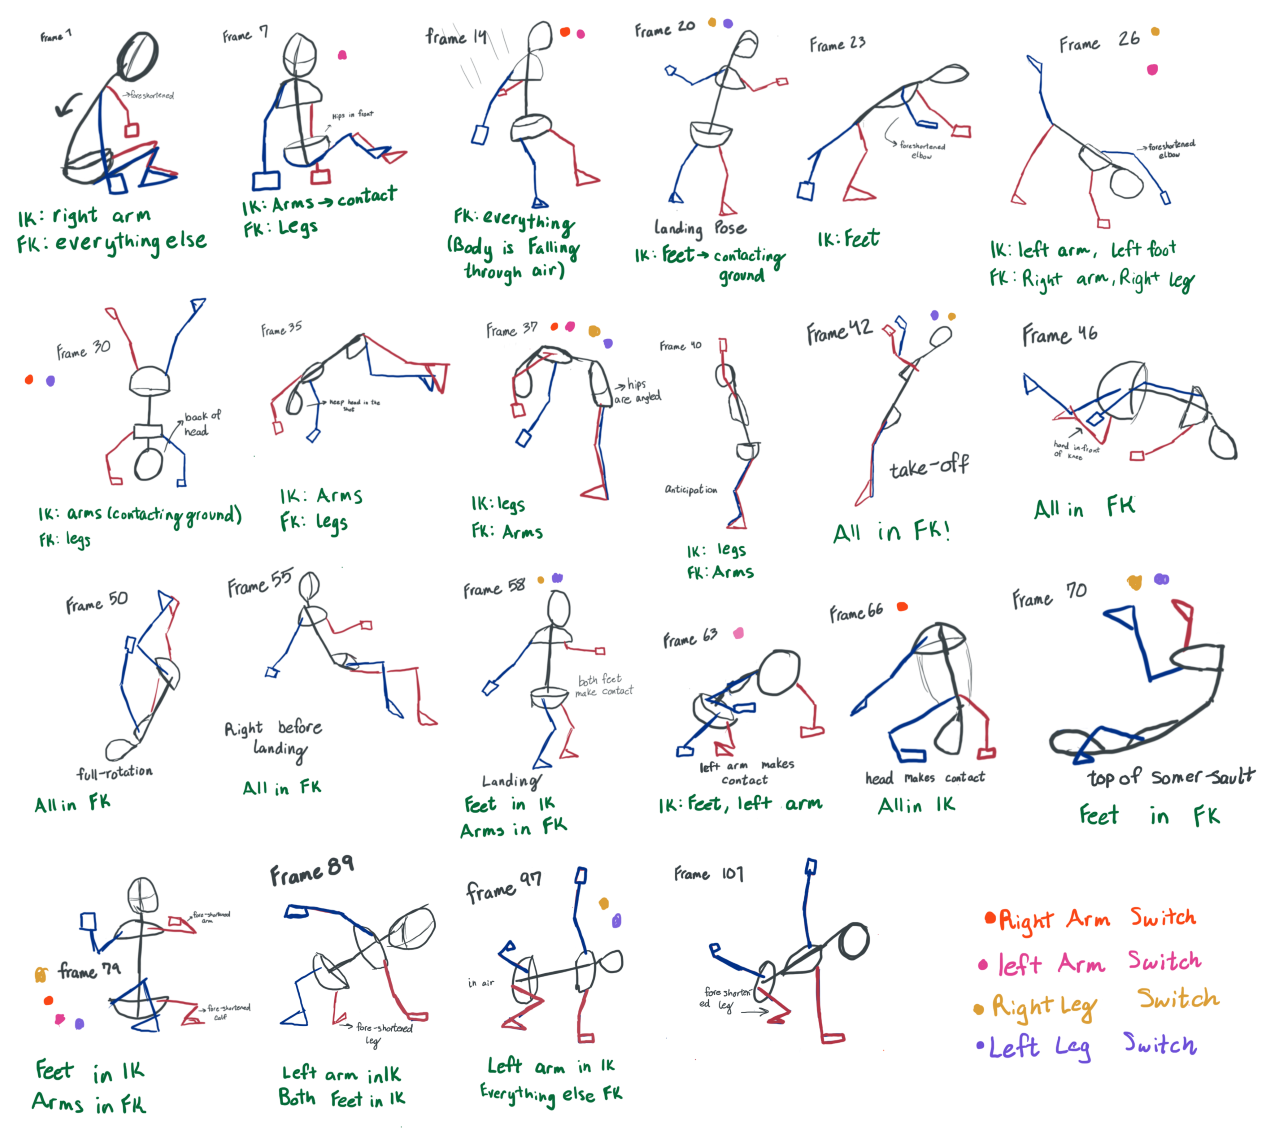 Frame 1
→foreshortened
IK: right arm
FK: everything else
Frame 7
Hips in front
IK: Arms → contact
FK: Legs
frame 14
FK: everything
(Body is Falling
through air)
Frame 20
Landing Pose
IK: Feet → contacting
ground
Frame 23
foreshortened
elbow
IK: Feet
Frame 26
→foreshortened
elbow
IK: left arm, Left foot
FK: Right arm, Right leg
Frame 30
back of
head
IK: arms (contacting ground)
FK: legs
Frame 35
keep head in the
IK: Arms
FK: legs
Frame 37
→hips
are angled
IK: legs
FK: Arms
Frame 40
Anticipation
IK: legs
FK: Arms
Frame 42
take-off
All in FK!
Frame 46
hand in-front
of knee
All in FK
Frame 50
full-rotation
All in FK
Frame 55
Right before
landing
All in FK
Frame 58
both feet
make contact
Landing
Feet in IK
Arms in FK
Frame 63
left arm makes
contact
IK: Feet, left arm
Frame 66
head makes contact
All in IK
Frame 70
top of somer-sault
Feet in FK
frame 79
fore-shortened
arm
→fore-shortened
calf
Feet in IK
Arms in FK
Frame 89
fore-shortened
leg
Left arm in IK
Both Feet in IK
frame 97
in air
Left arm in IK
Everything else FK
Frame 101
foreshorten
ed leg
Right Arm Switch
left Arm Switch
Right Leg Switch
Left Leg Switch